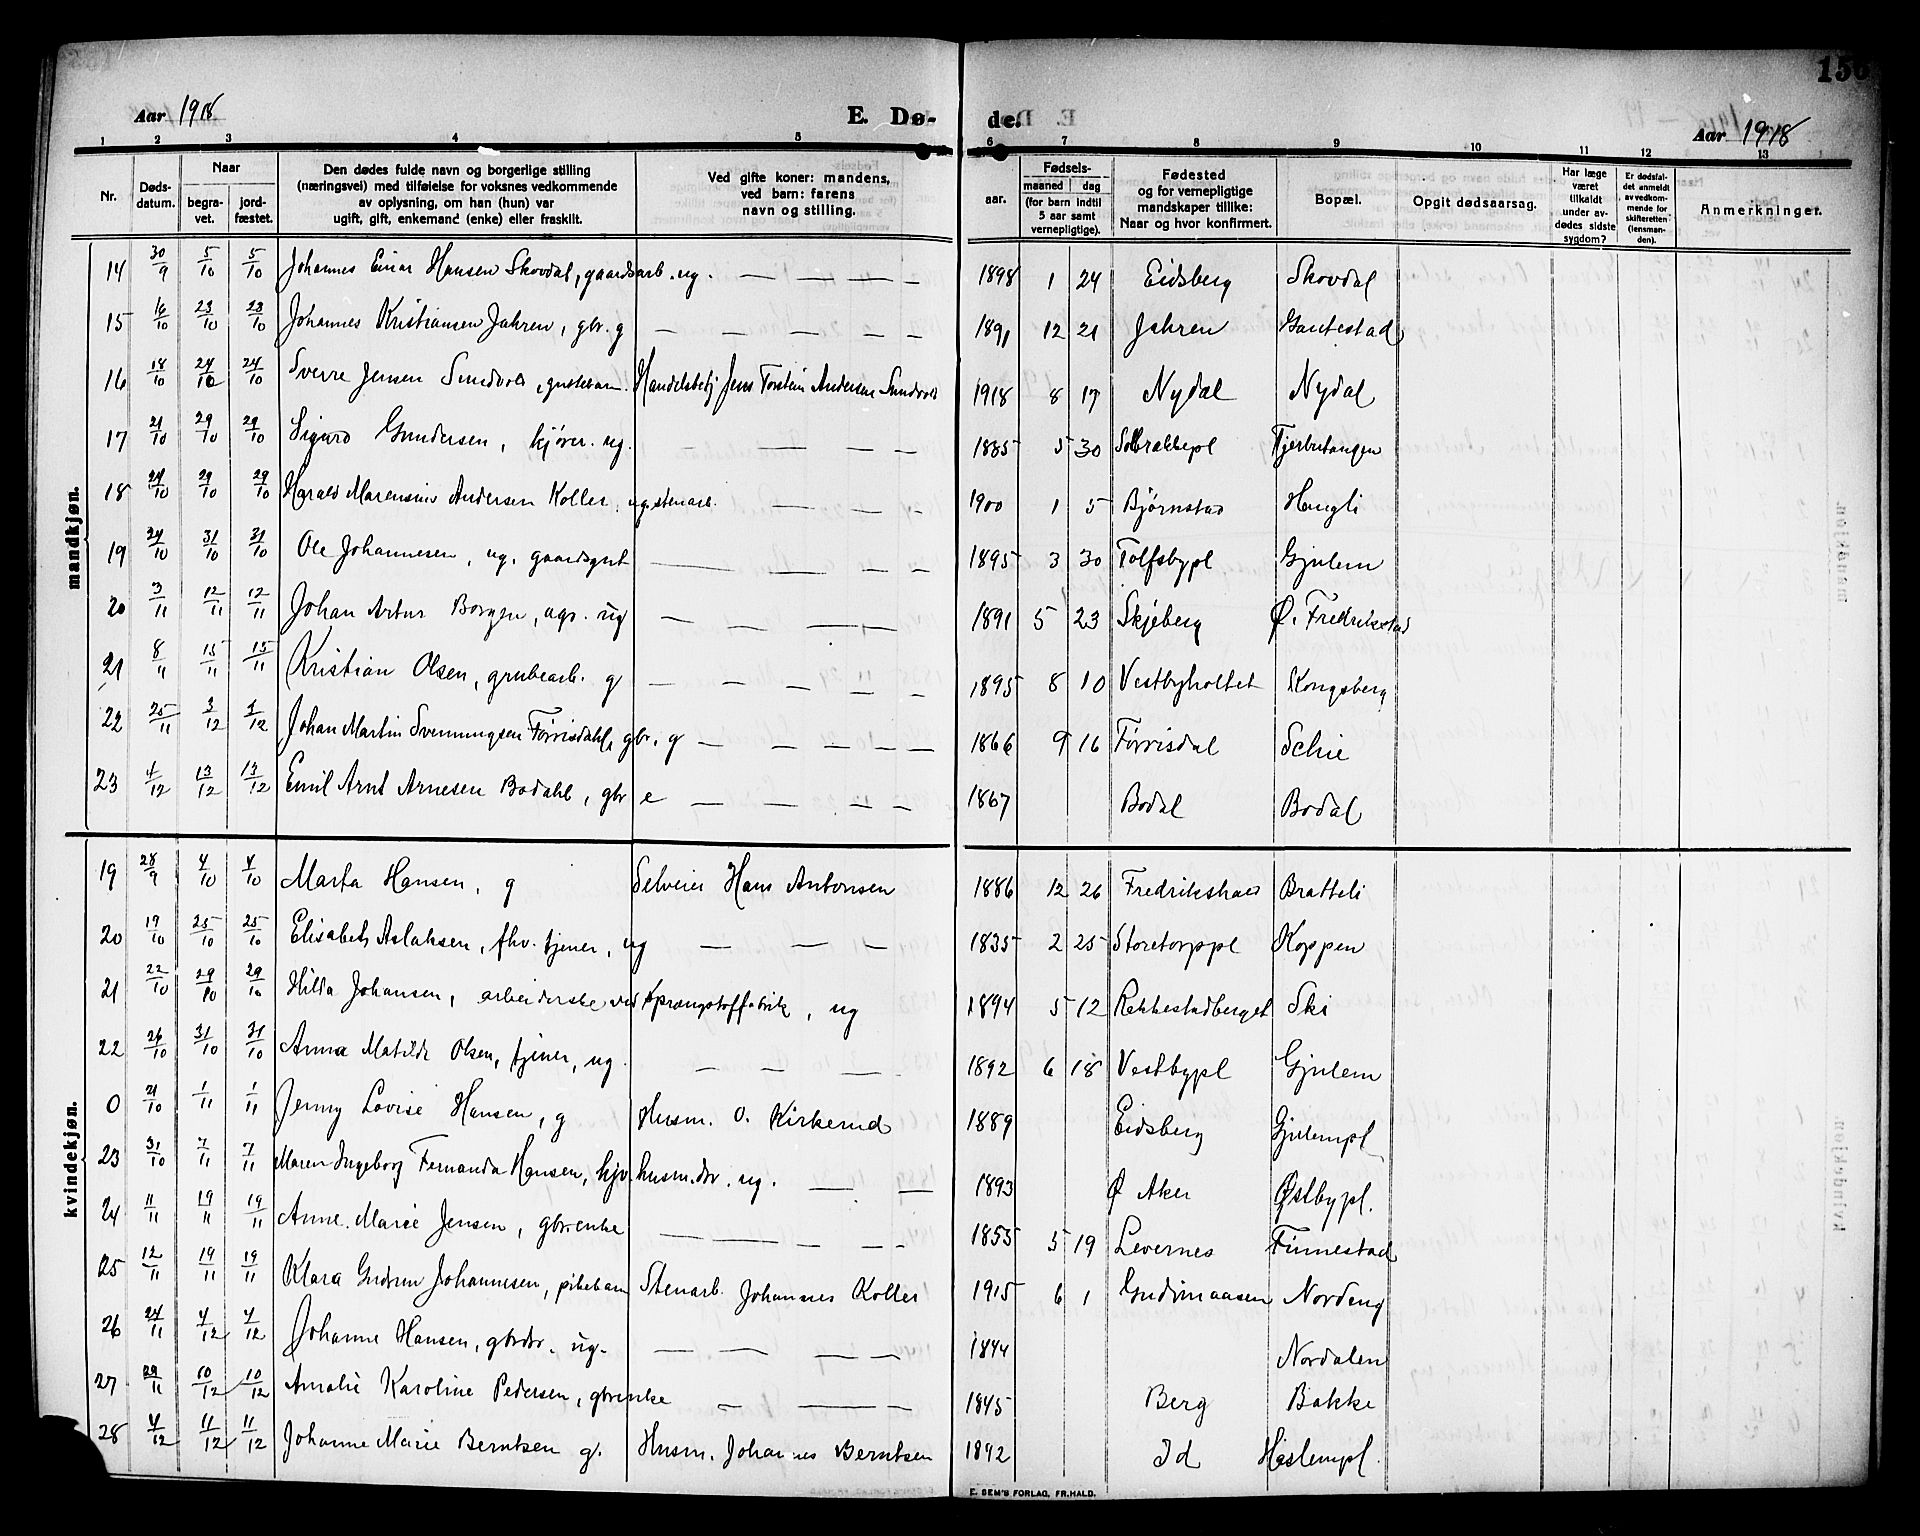 Aar 1918 E. Dø- de. Aar 1918 150
1 2 3 4 5 6 7 8 9 10 11 12 13
Nr. Døds- datum. Naar begra- vet. jord- fæstet. Den dødes fulde navn og borgerlige stilling (næringsvei) med tilføielse for voksnes vedkommende av oplysning, om han (hun) var ugift, gift, enkemand (enke) eller fraskilt. Ved gifte koner: mandens, ved barn: farens navn og stilling. Fødsels- aar. maaned dag (for barn indtil 5 aar samt vernepligtige). Fødested og for vernepligtige mandskaper tillike: Naar og hvor konfirmert. Bopæl. Opgit dødsaarsag. Har læge været tilkaldt under av- dødes sidste sygdom? Er dødsfal- det anmeldt av vedkom- mende for skifteretten (lensman- den). Anmerkninger.
mandkjøn.
14 30/9 5/10 5/10 Johannes Einar Hansen Skovdal, gaardsarb. ug. — — — — 1898 1 24 Eidsberg Skovdal
15 16/10 23/10 23/10 Johannes Kristiansen Jahren, gbr. g — — — — — 1891 12 21 Jahren Gautestad
16 18/10 24/10 24/10 Sverre Jensen Sundvold, guttebarn. Handelsbetj Jens Torstein Andersen Sundvold 1918 8 17 Nydal Nydal
17 21/10 29/10 29/10 Sigurd Gundersen, kjører. ug. — — — — 1885 5 30 Solbrækkepl Tjerbutangen
18 24/10 29/10 29/10 Harald Marensius Andersen Koller, ug. stenarb. — — — — 1900 1 5 Bjørnstad Haugli
19 24/10 31/10 31/10 Ole Johannesen, ug. gaardsgut — — — — 1895 3 30 Tolfsbypl Gjulem
20 3/11 12/11 12/11 Johan Artur Borgen, ags. ug — — — — 1891 5 23 Skjeberg Ø. Fredrikstad
21 8/11 15/11 15/11 Kristian Olsen, grubearb. g — — — — — 1895 8 10 Vestbyholtet Kongsberg
22 25/11 3/12 1/12 Johan Martin Svenningsen Tørrisdahl, gbr. g — — — — — 1866 9 16 Tørrisdal Schie
23 4/12 13/12 13/12 Emil Arnt Arnesen Bodahl, gbr e — — — — 1867 Bodal Bodal
kvindekjøn.
19 28/9 4/10 4/10 Marta Hansen, g Selveier Hans Antonsen 1886 12 26 Fredrikshald Bratteli
20 17/10 25/10 25/10 Elisabeth Aslaksen, fhv. tjener, ug — — — 1835 2 25 Storetorppl Koppen
21 22/10 29/10 29/10 Hilda Johansen, arbeiderske ved sprængstoffabrik, ug 1894 5 12 Rakkestadberget Ski
22 26/10 31/10 31/10 Anna Matilde Olsen, tjener, ug. — — — 1892 6 18 Vestbypl Gjulem
0 21/10 1/11 1/11 Jenny Lovise Hansen, g Husm. O. Kirkerud 1889 Eidsberg Gjulempl
23 31/10 7/11 7/11 Maren Ingeborg Fernanda Hansen, hjv. husm.dtr. ug. — — 1893 Ø Aker Østbypl.
24 11/11 19/11 19/11 Anne Marie Jensen, gbrenke — — — — — 1855 5 19 Levernes Finnestad
25 12/11 19/11 19/11 Klara Gudrun Johannesen, pikebarn Stenarb. Johannes Koller 1915 6 1 Gudimaasen Nordeng
26 24/11 4/12 4/12 Johanne Hansen, gbrdtr. ug. — — — — 1844 Nordalen
27 29/11 10/12 10/12 Amalie Karoline Pedersen, gbrenke — — — — 1845 Berg Bakke
28 4/12 11/12 11/12 Johanne Marie Berntsen g. Husm. Johannes Berntsen 1842 Id Haslempl.
E. SEM'S FORLAG, FR.HALD.